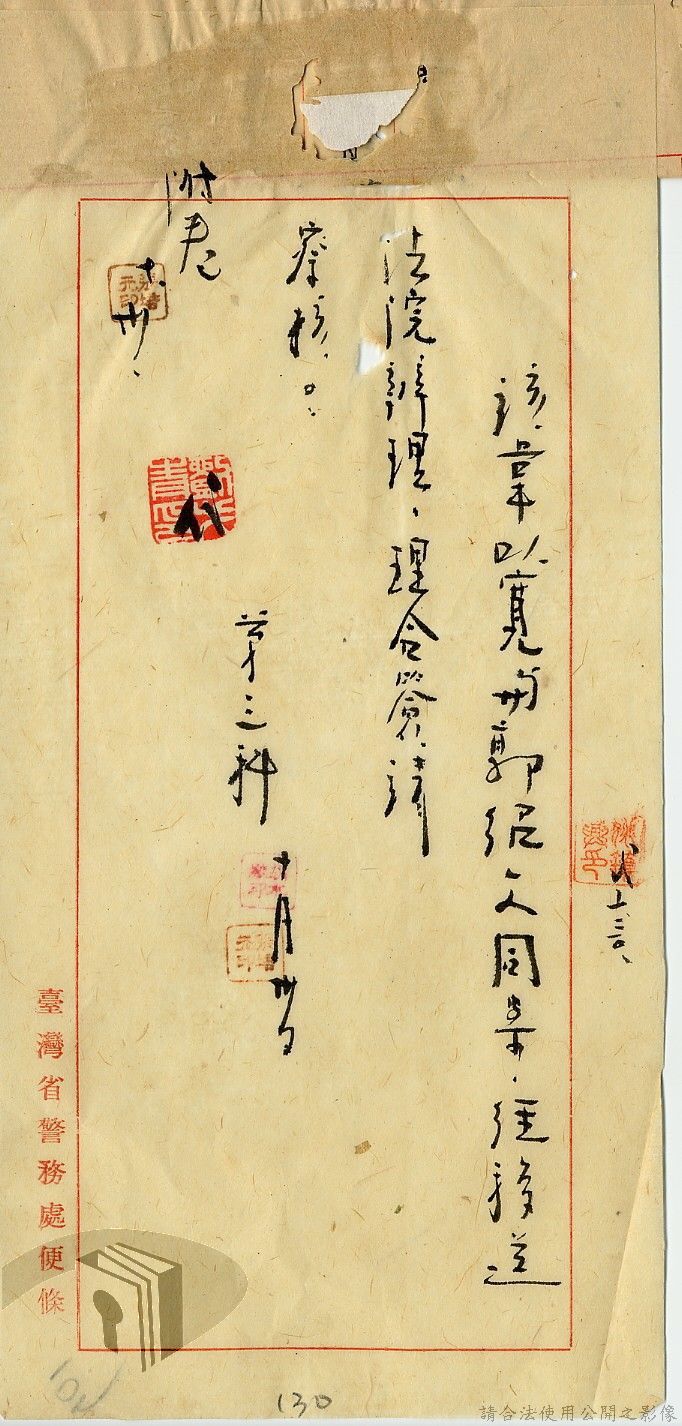 該韋以寬与郭紹文同案，經移送
法院辦理，理合簽請
察核。
第三科
十月卅日
附卷
十、卅、
代
代
臺灣省警務處便條
130
請合法使用公開之影像